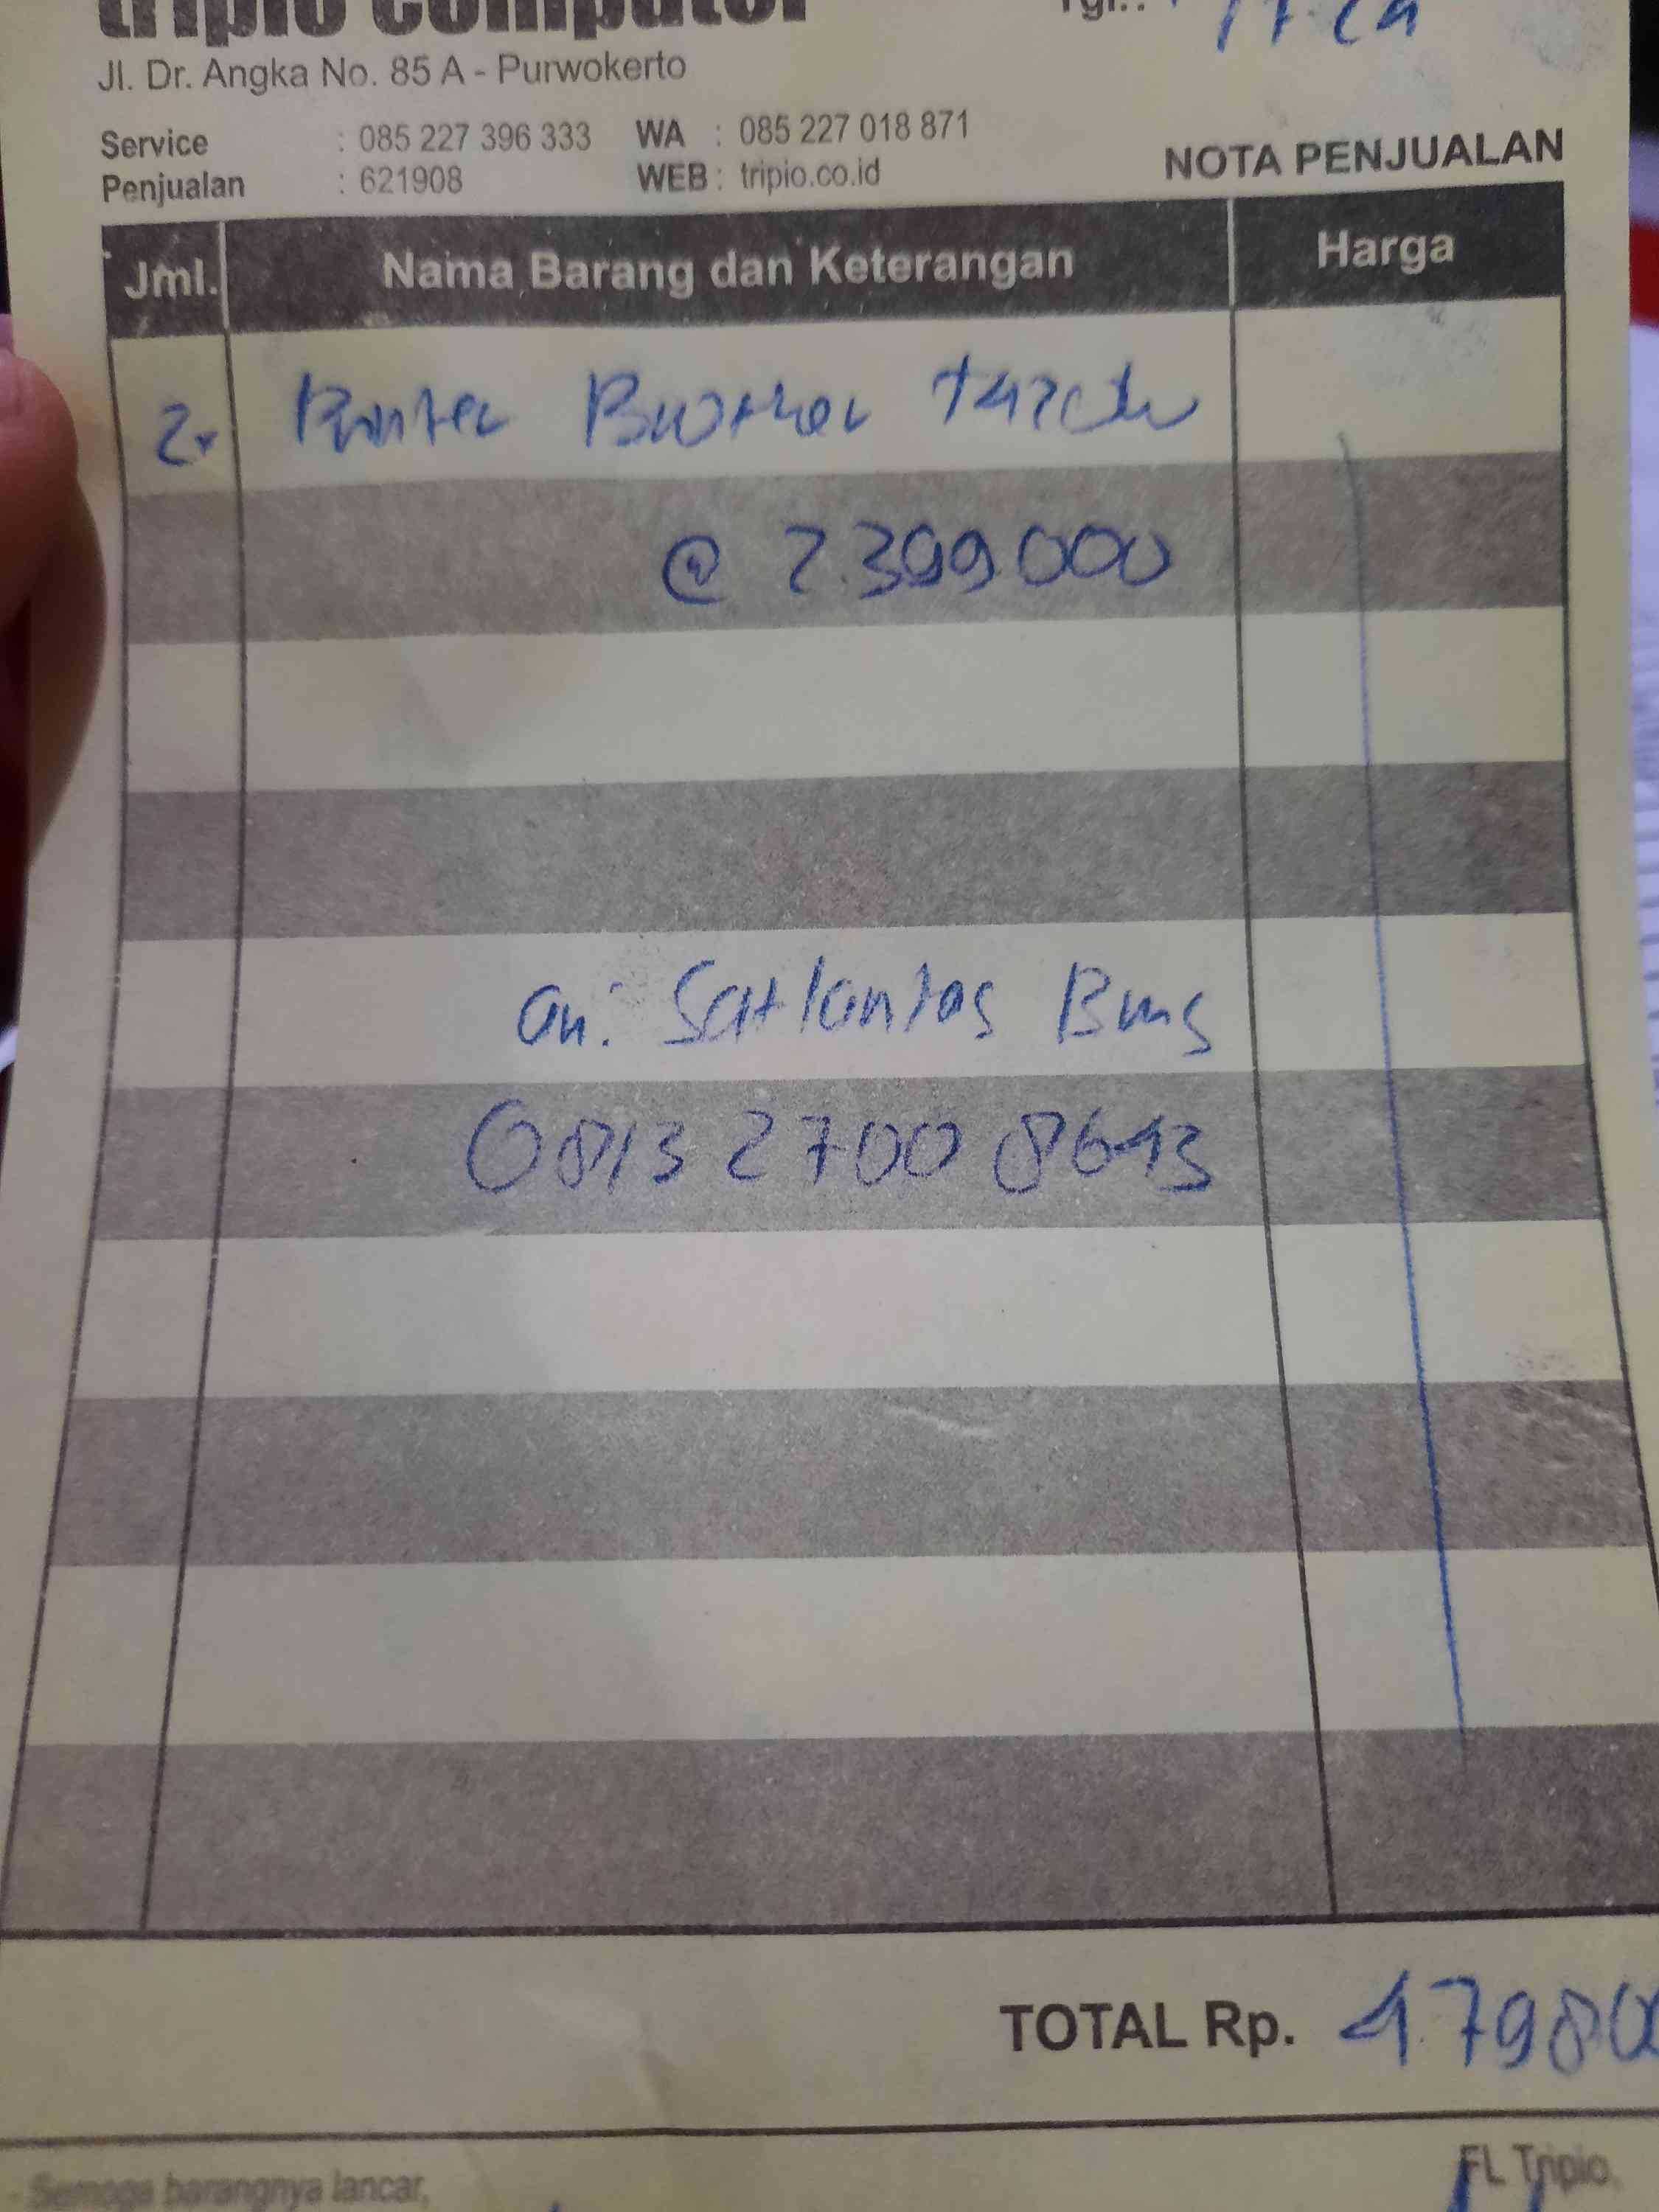 tripio computer
Tgl.:
Jl. Dr. Angka No. 85 A - Purwokerto
Service : 085 227 396 333 WA : 085 227 018 871
Penjualan : 621908 WEB : tripio.co.id
NOTA PENJUALAN
Jml. Nama Barang dan Keterangan Harga
2x Printer Brother
@ 2.399.000
an: Satlantas Bms
0813 2700 8643
TOTAL Rp. 4.7980
- Semoga barangnya lancar,
FL Tripio,